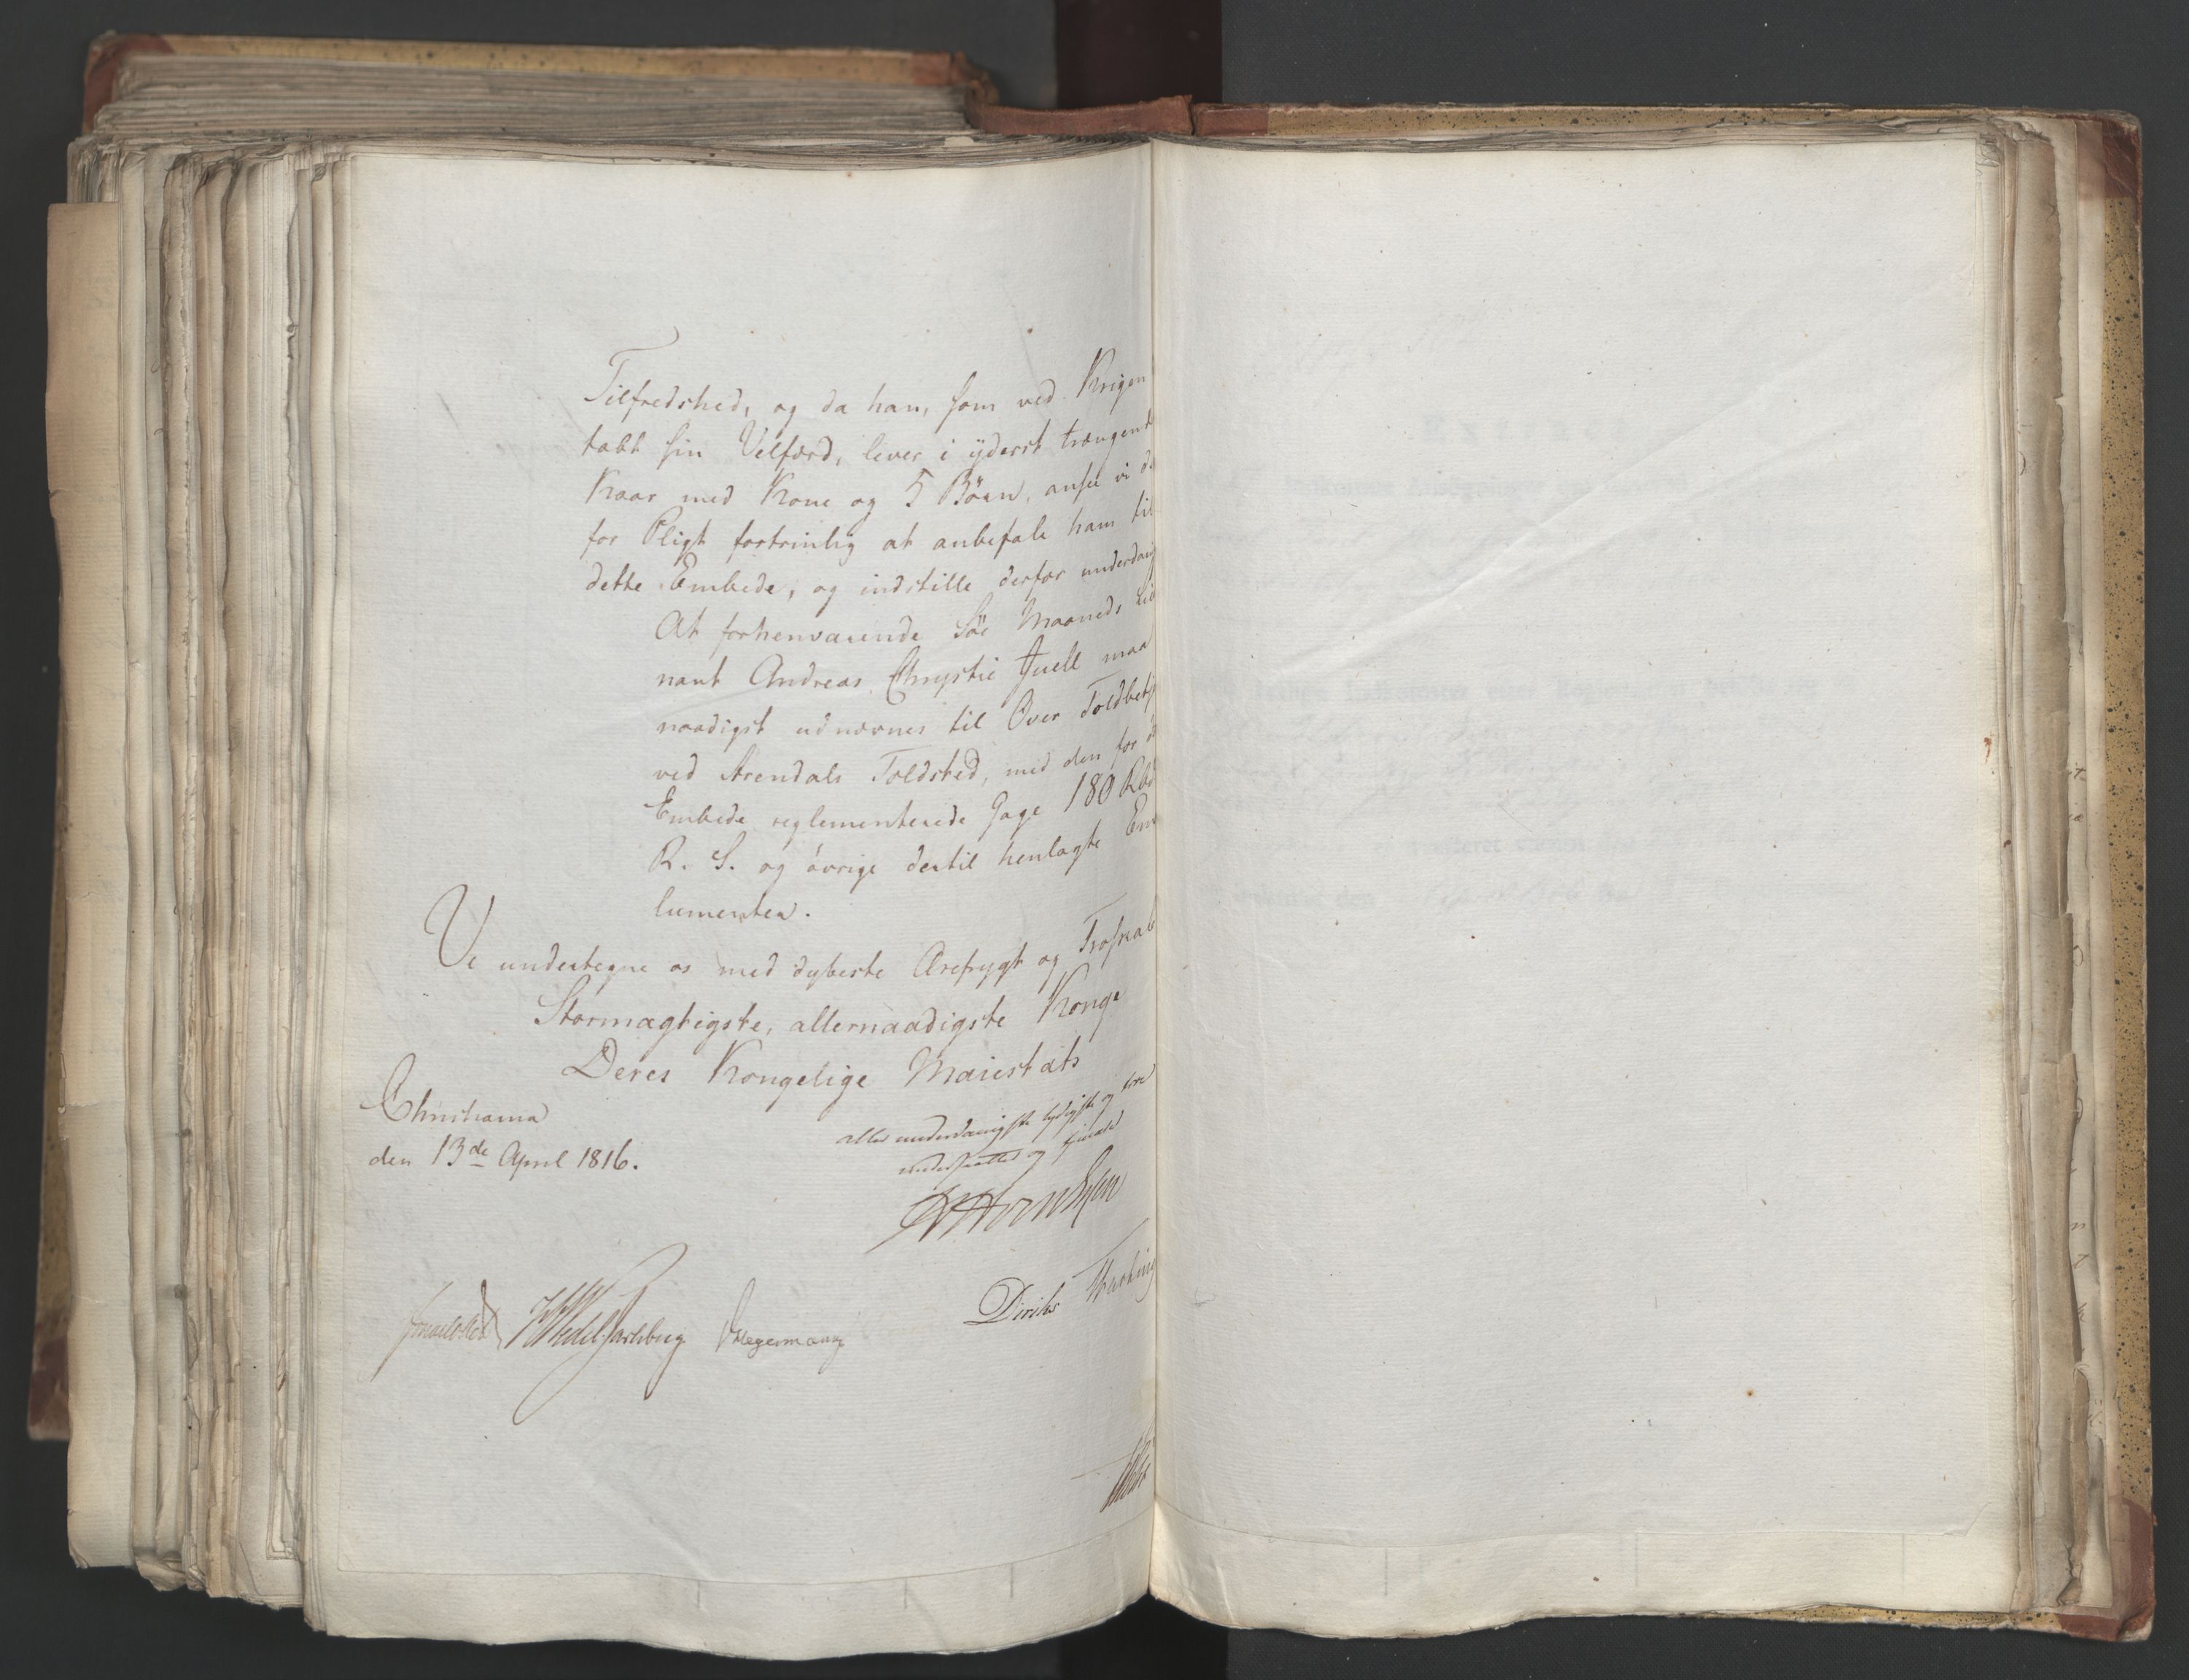 Tilfredshed, og da han, som ved Krigen
tabt sin Velfærd, lever i ÿderst trængend
Kaar med Kone og 5 Börn, ansee vi d
for Pligt fortrinlig at anbefale ham til
dette Embede, og indstille derfor underdan
At forhenværende Söe Maaneds Lie
nant Andreas Chrystie Juell maa
naadigst udnævnes til Over Toldbetj
ved Arendals Toldsted, med den for d
Embede reglementerede Gage 180 Rbd
R. S. og övrige dertil henlagte Emo
lumenter.
Vi undertegne os med dybeste Ærefrygt og Troskab
Stormægtigste, allernaadigste Konge
Deres Kongelige Maiestæts
Christiania
den 13de April 1816.
aller underdanigste lydigste og troe
undersaatter og tjenere
Sommerhielm
HWedel Jarlsberg
DHegermann
Diriks